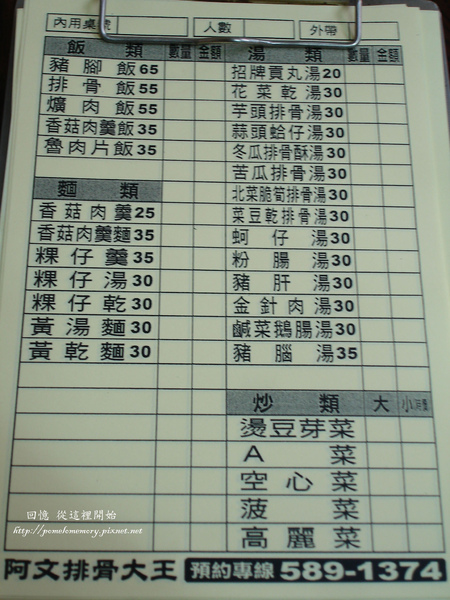 內用桌號 人數 外帶
飯類 數量 金額
豬腳飯65
排骨飯55
爌肉飯55
香菇肉羹飯35
魯肉片飯35
麵類
香菇肉羹25
香菇肉羹麵35
粿仔羹35
粿仔湯30
粿仔乾30
黃湯麵30
黃乾麵30
湯類 數量 金額
招牌貢丸湯20
花菜乾湯30
芋頭排骨湯30
蒜頭蛤仔湯30
冬瓜排骨酥湯30
苦瓜排骨湯30
北菜脆筍排骨湯30
菜豆乾排骨湯30
蚵仔湯30
粉腸湯30
豬肝湯30
金針肉湯30
鹹菜鵝腸湯30
豬腦湯35
炒類 大 小
燙豆芽菜
A菜
空心菜
菠菜
高麗菜
回憶 從這裡開始
http://pomolomemory.pixnet.net
阿文排骨大王 預約專線 589-1374